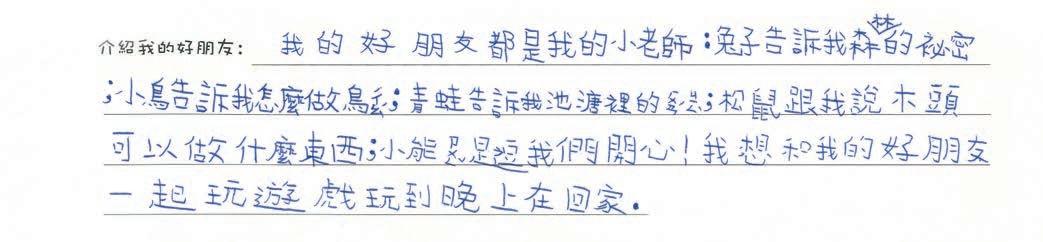 介紹我的好朋友： 我的好朋友都是我的小老師；兔子告訴我森林的祕密
；小鳥告訴我怎麼做鳥；青蛙告訴我池溏裡的；松鼠跟我說木頭
可以做什麼東西；小能是逗我們開心！我想和我的好朋友
一起玩遊戲玩到晚上在回家．